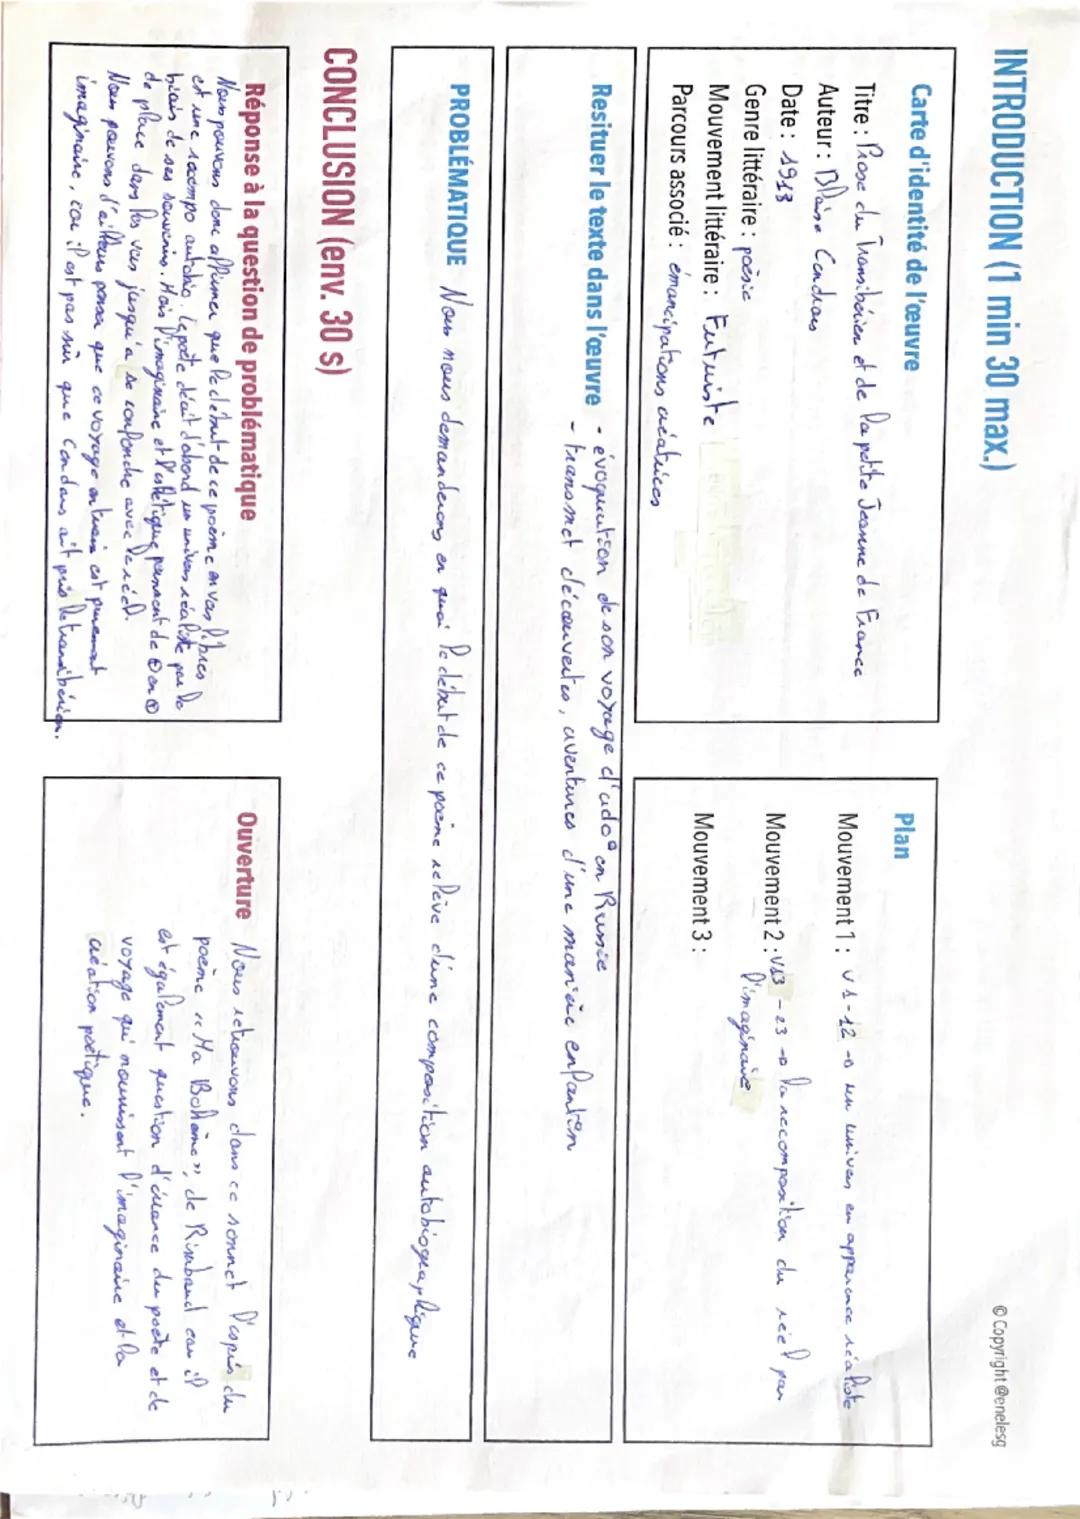 INTRODUCTION (1 min 30 max.)
© Copyright @enelesg
Carte d'identité de l'œuvre
Titre : Prose du Transibérien et de la petite Jeanne de France
Auteur : Blaise Cendrars
Date : 1913
Genre littéraire : poésie
Mouvement littéraire : Futuriste
Parcours associé : émancipations créatrices
Plan
Mouvement 1 : v1-12 → un univers en apparence réaliste
Mouvement 2 : v13-23 → la recomposition du réel par
l'imaginaire
Mouvement 3 :
Resituer le texte dans l'œuvre - évoquation de son voyage d'ado° en Russie
- transmet découvertes, aventures d'une manière enfantin
PROBLÉMATIQUE Nous nous demanderons en quoi le début de ce poème relève d'une composition autobiographique
CONCLUSION (env. 30 s)
Réponse à la question de problématique
Nous pouvons donc affirmer que le début de ce poème en vers libres
est une recompo autobio, le poète décrit d'abord un univers réaliste par le
biais de ses souvenirs. Mais l'imaginaire et l'esthétique prennent de ⊕ en ⊕
de place dans les vers jusqu'a se confondre avec le réel.
Nous pouvons d'ailleurs penser que ce voyage en train est purement
imaginaire, car il est pas sûr que Cendars ait pris le transibérien.
Ouverture Nous retrouvons dans ce sonnet l'esprit du
poème « Ma Bohème », de Rimbaud car il
est également question d'errance du poète et de
voyage qui nourrissent l'imaginaire et la
création poétique.